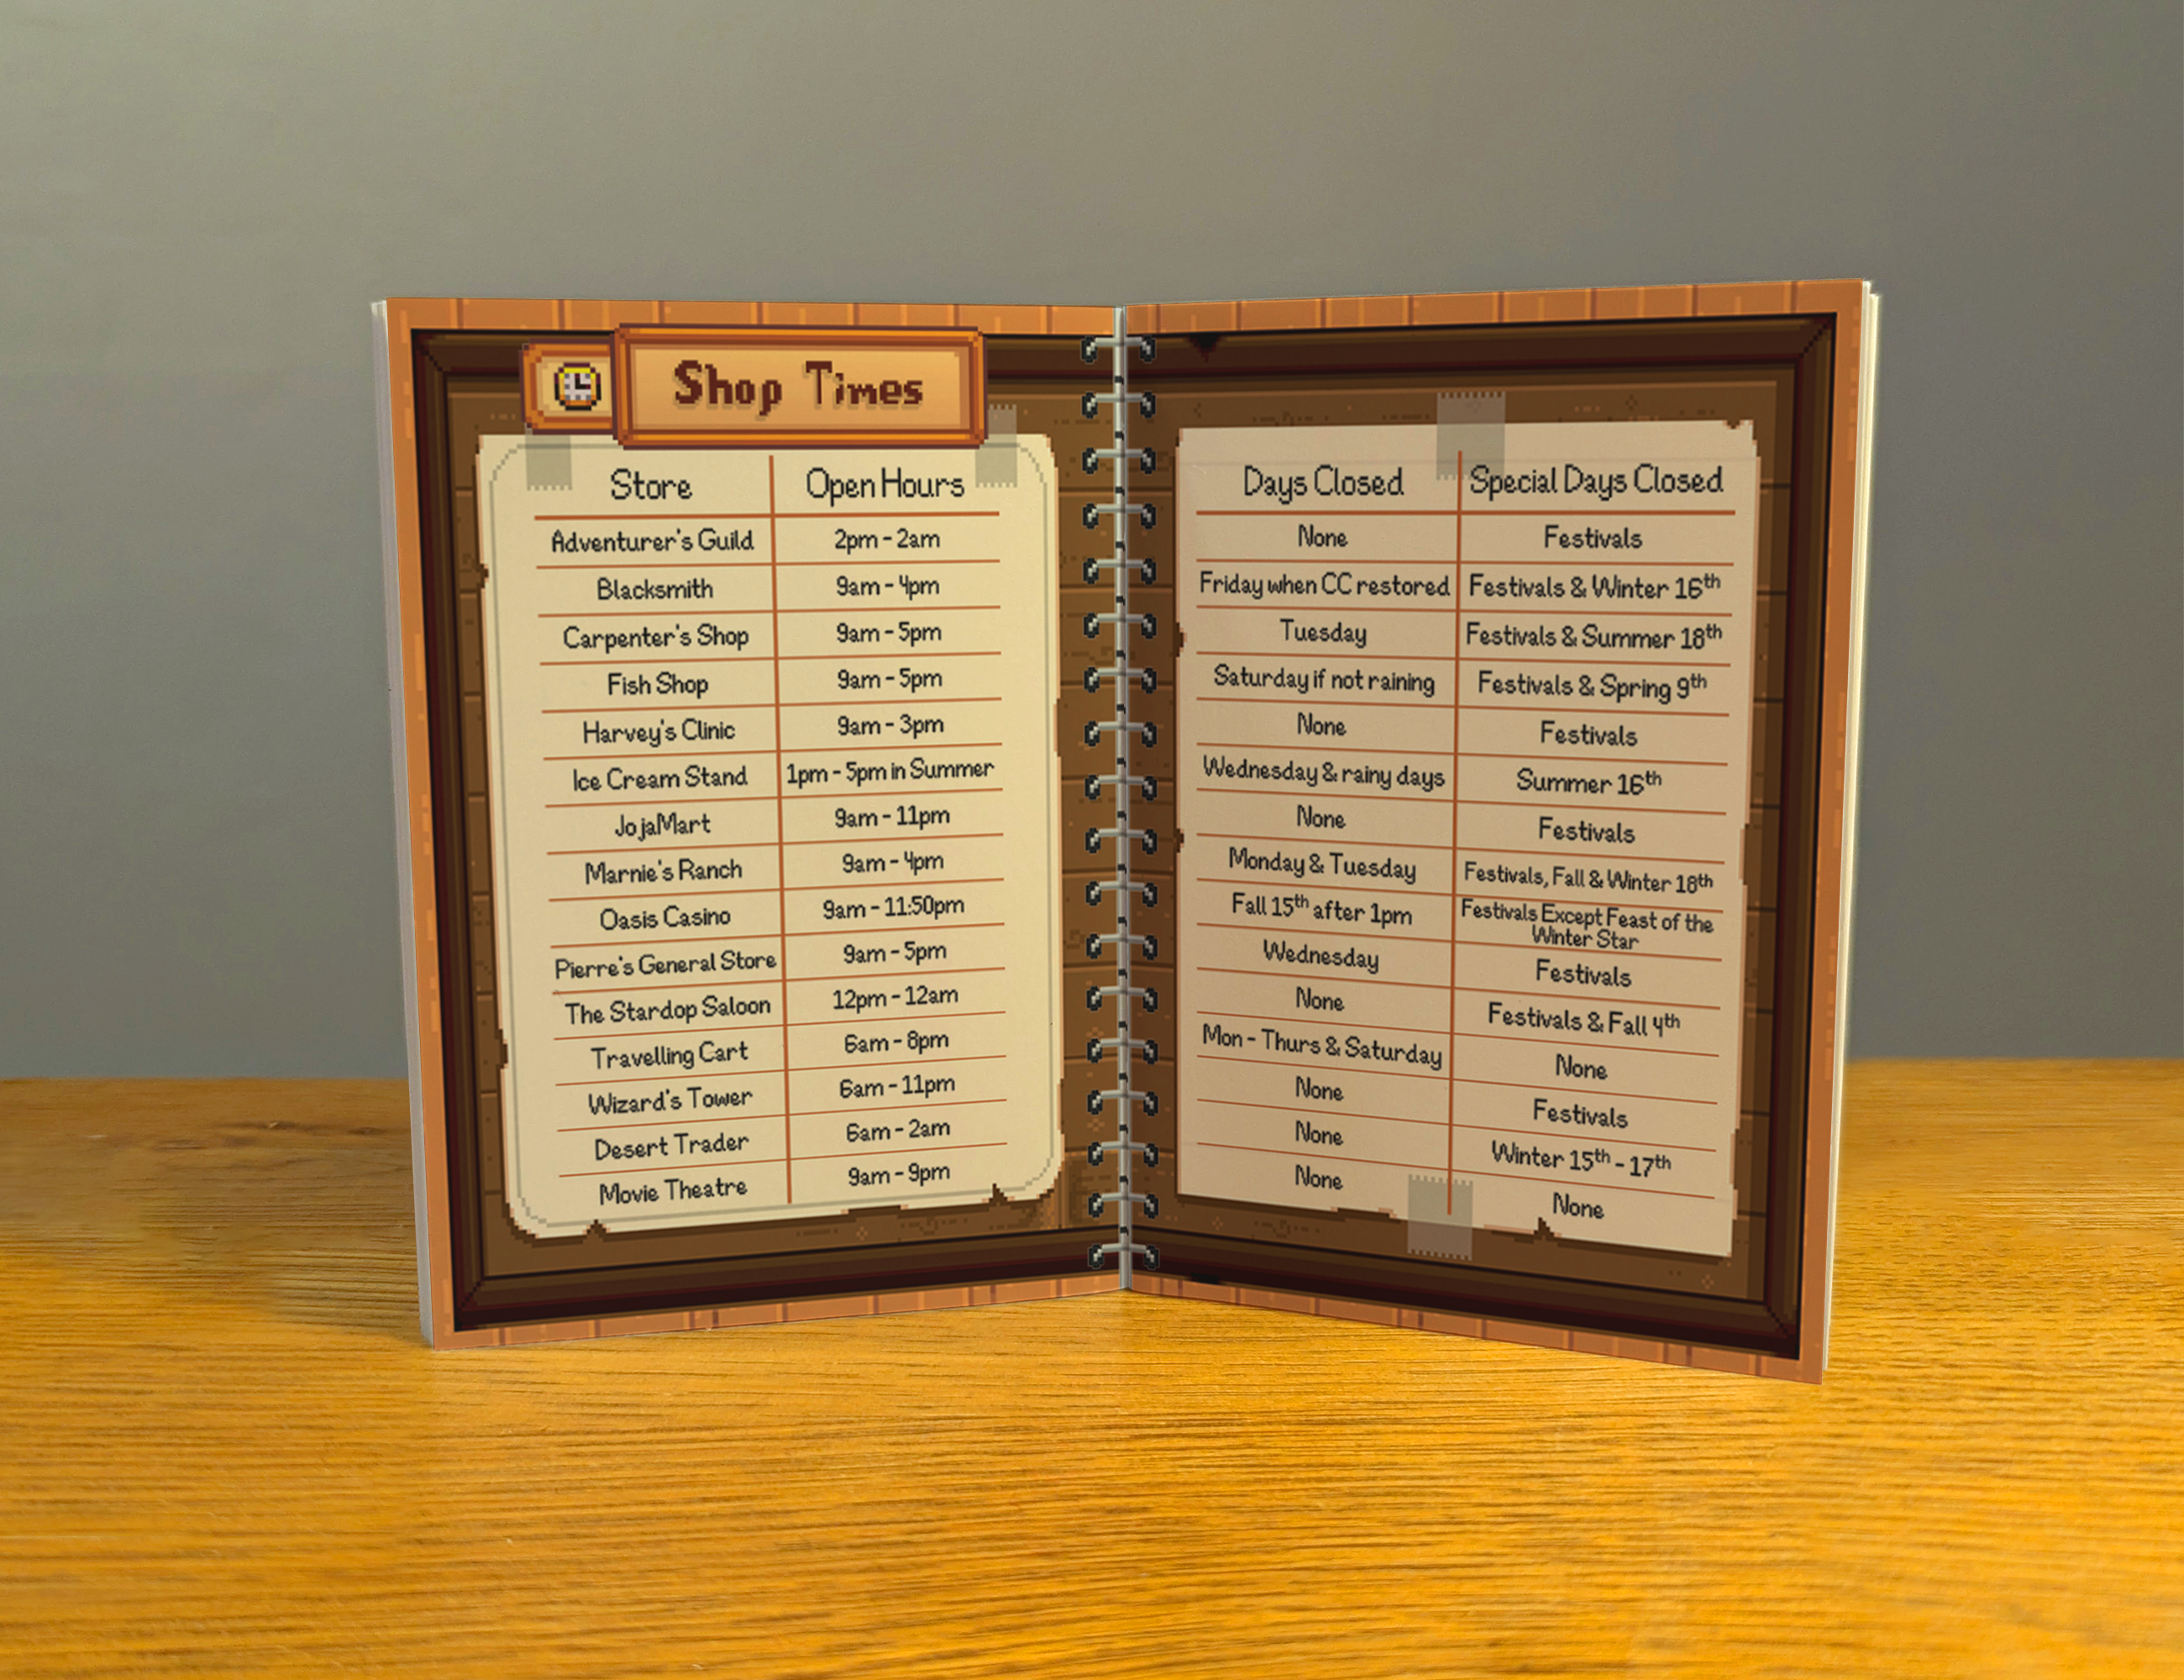 Shop Times
Store Open Hours
Adventurer's Guild 2pm - 2am
Blacksmith 9am - 4pm
Carpenter's Shop 9am - 5pm
Fish Shop 9am - 5pm
Harvey's Clinic 9am - 3pm
Ice Cream Stand 1pm - 5pm in Summer
JojaMart 9am - 11pm
Marnie's Ranch 9am - 4pm
Oasis Casino 9am - 11:50pm
Pierre's General Store 9am - 5pm
The Stardop Saloon 12pm - 12am
Travelling Cart 6am - 8pm
Wizard's Tower 6am - 11pm
Desert Trader 6am - 2am
Movie Theatre 9am - 9pm
Days Closed Special Days Closed
None Festivals
Friday when CC restored Festivals & Winter 16th
Tuesday Festivals & Summer 18th
Saturday if not raining Festivals & Spring 9th
None Festivals
Wednesday & rainy days Summer 16th
None Festivals
Monday & Tuesday Festivals, Fall & Winter 18th
Fall 15th after 1pm Festivals Except Feast of the
Winter Star
Wednesday Festivals
None Festivals & Fall 4th
Mon - Thurs & Saturday None
None Festivals
None Winter 15th - 17th
None None